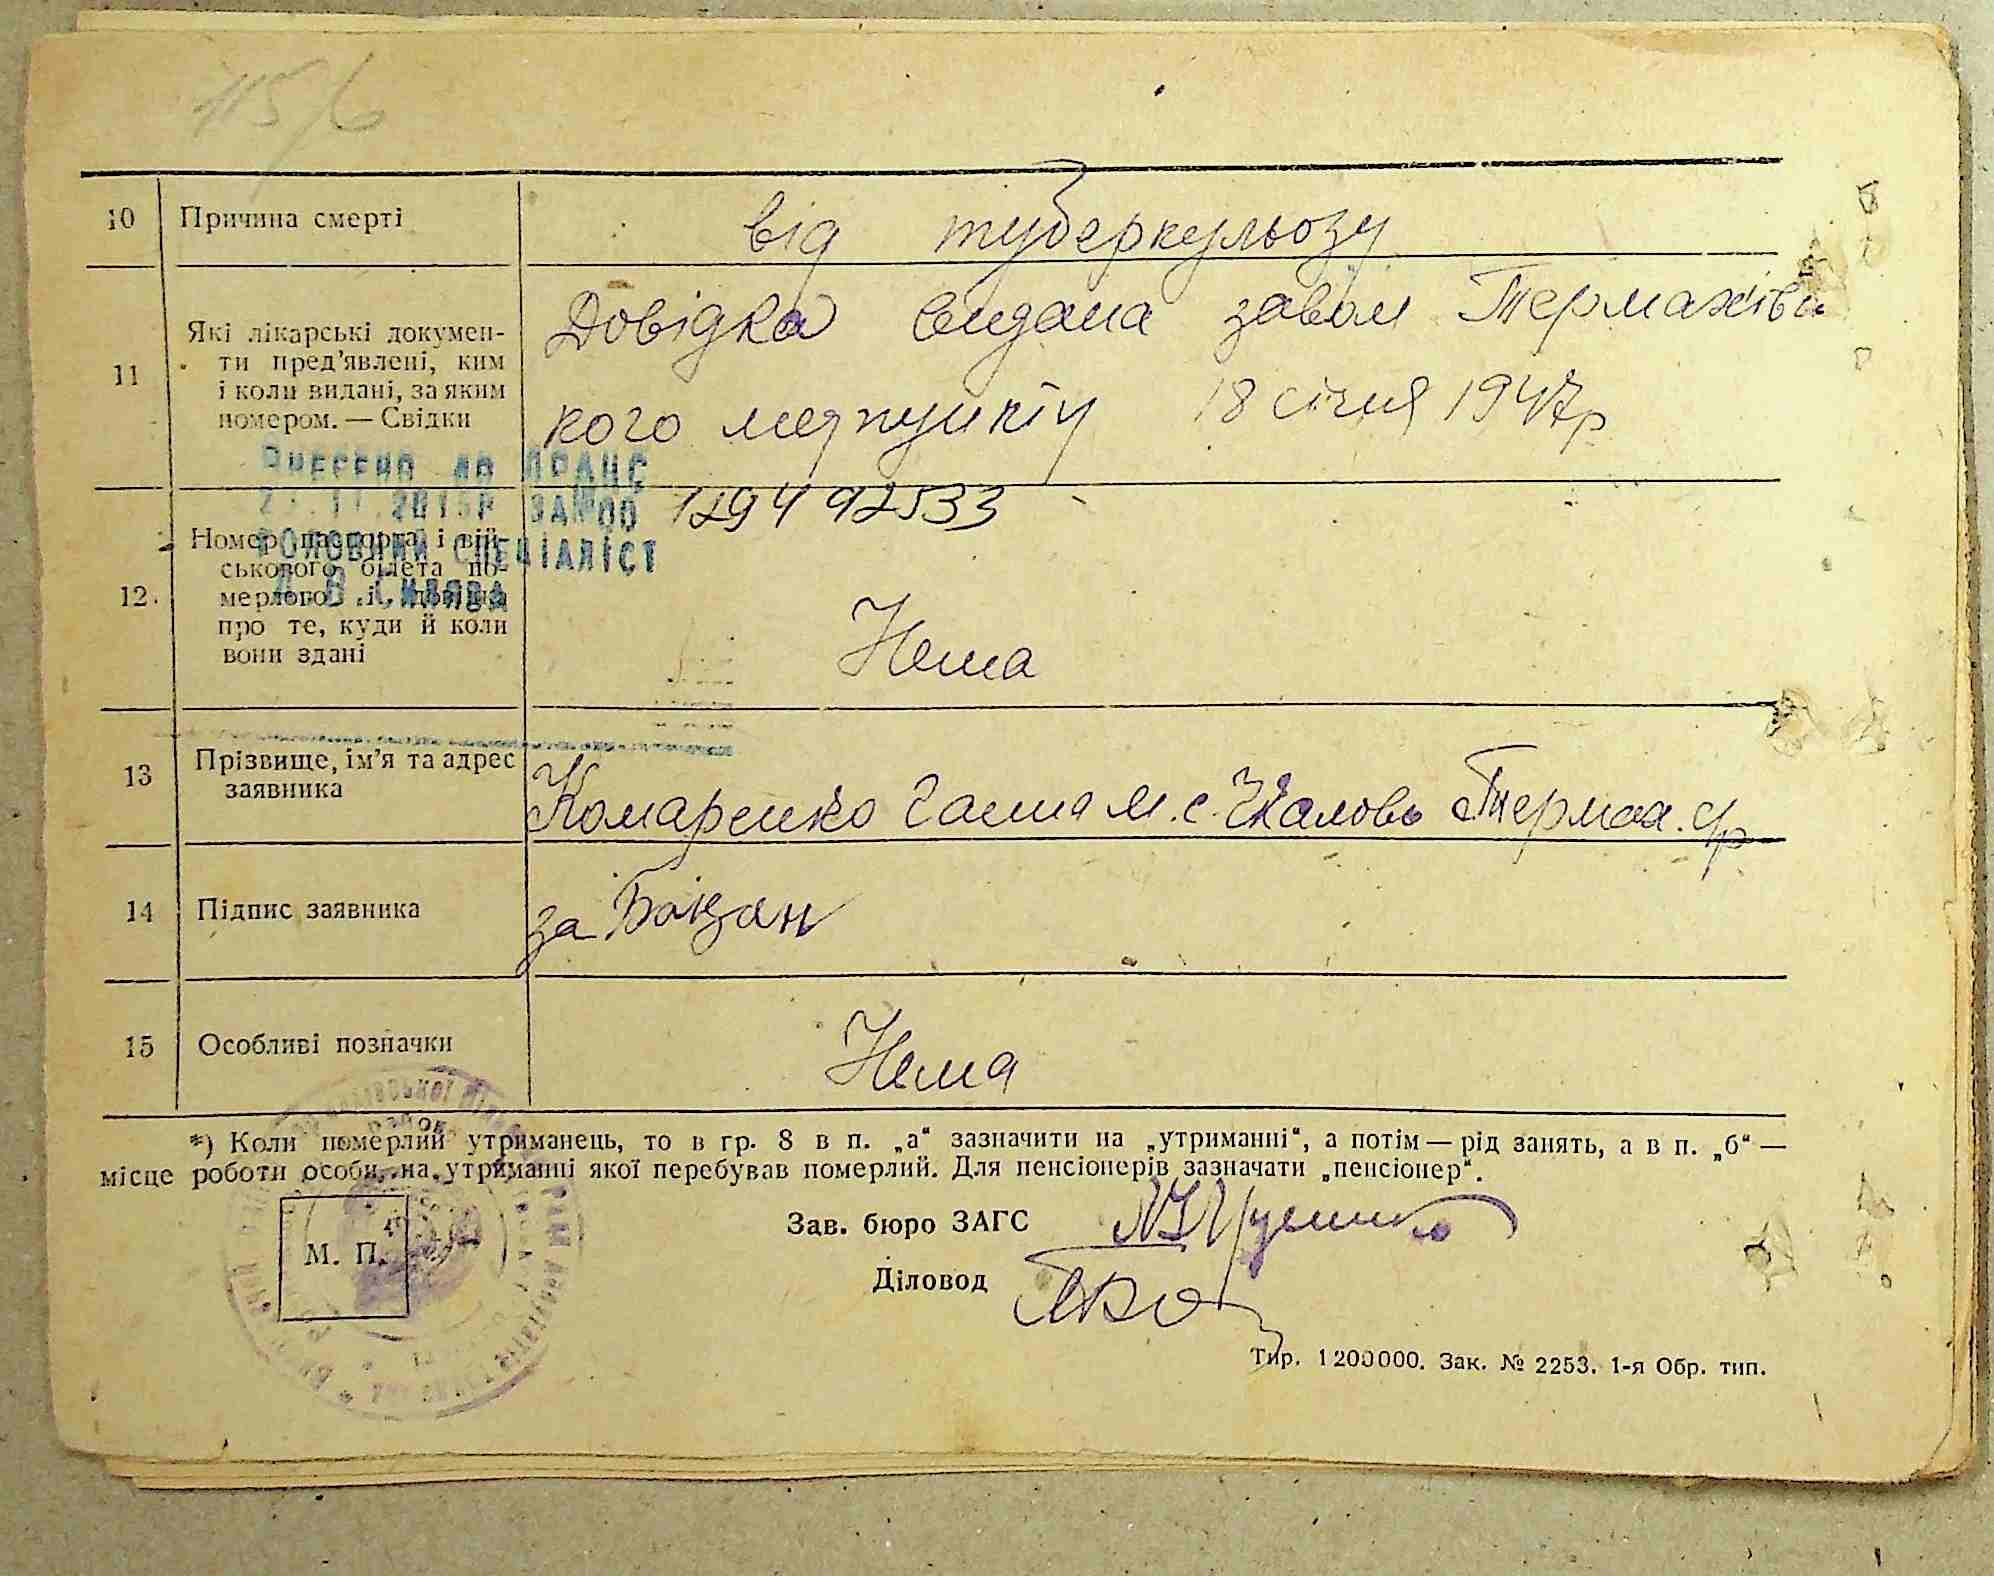 115/6
10 Причина смерті від туберкульозу
11 Які лікарські докумен-
ти пред'явлені, ким
і коли видані, за яким
номером. — Свідки
Довідка видана завом Термахівсь
кого медпункту 18 січня 1947р
ВНЕСЕНО ДО ДРАЦС
2015Р ЗА №00 129492533
ГОЛОВНИЙ СПЕЦІАЛІСТ
12. Номер паспорта і вій-
ськового білета по-
мерлого і довідка
про те, куди й коли
вони здані
Нема
13 Прізвище, ім'я та адрес
заявника
Комаренко Ганна М. с.
14 Підпис заявника за
15 Особливі позначки Нема
*) Коли померлий утриманець, то в гр. 8 в п. „а“ зазначити на „утриманні“, а потім — рід занять, а в п. „б“ —
місце роботи особи, на утриманні якої перебував померлий. Для пенсіонерів зазначати „пенсіонер“.
Зав. бюро ЗАГС
М. П.
Діловод
Тир. 1200000. Зак. № 2253. 1-я Обр. тип.